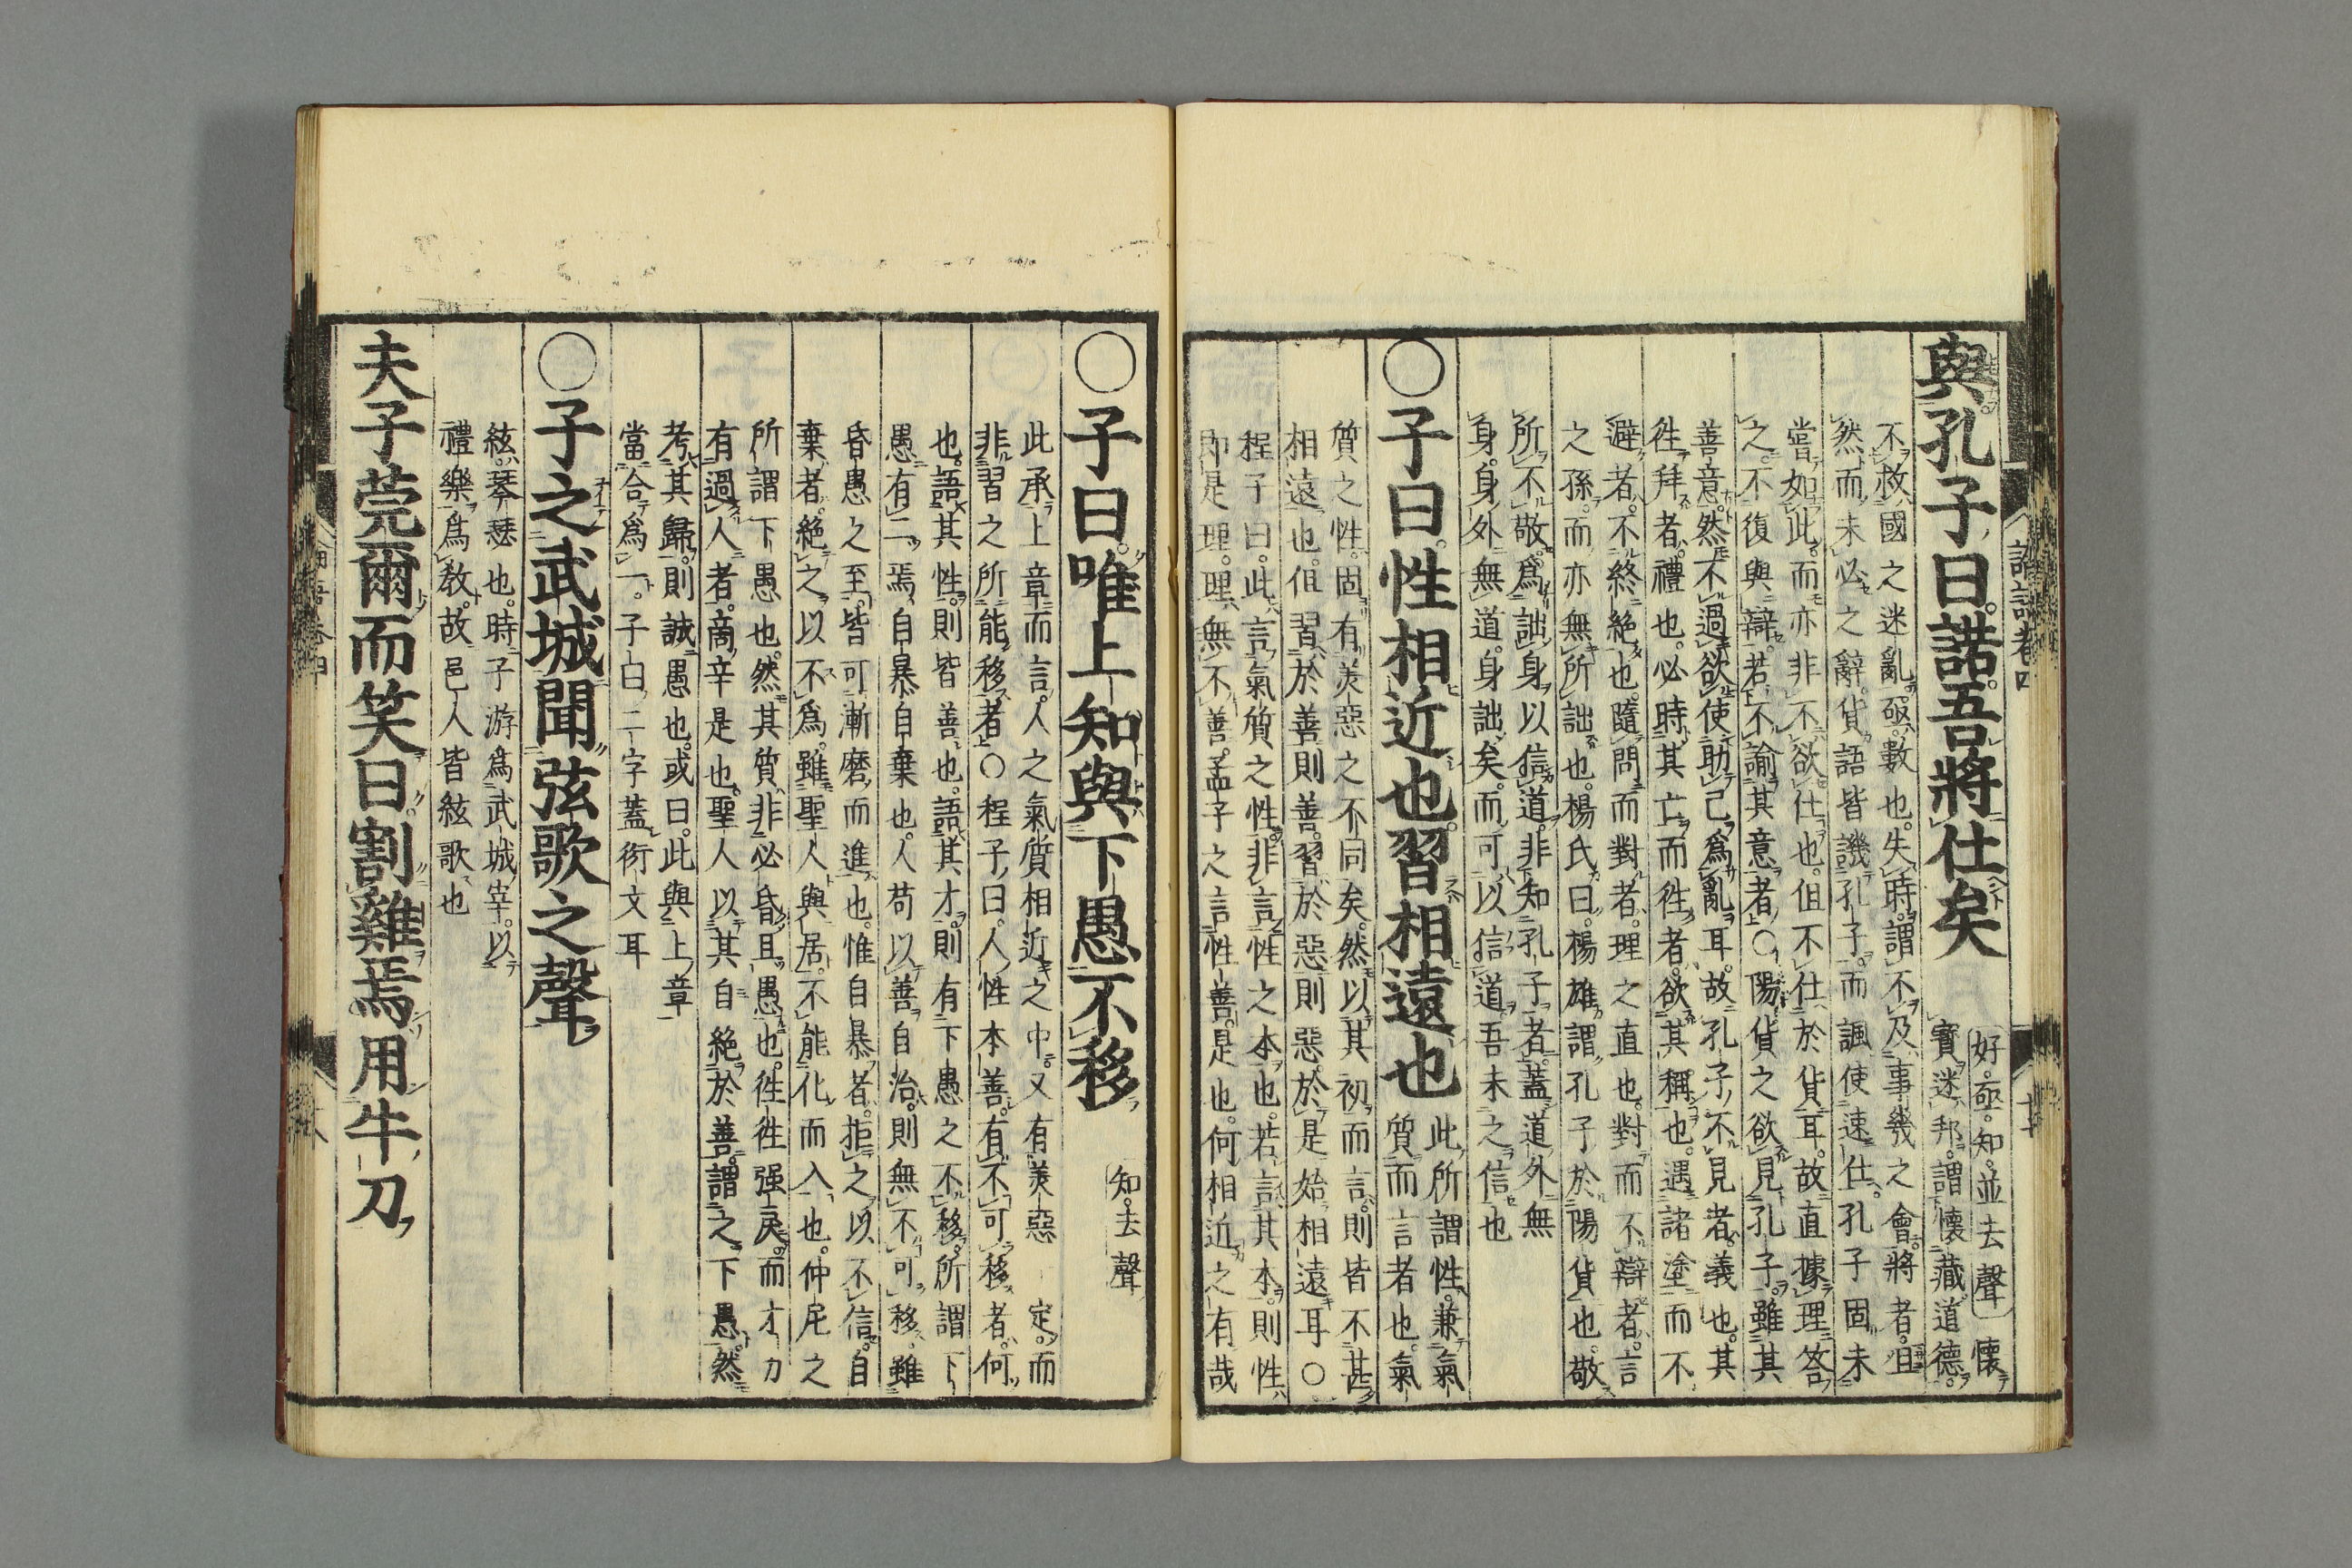 與孔子曰諾吾將仕矣
好亟知並去聲 懷
寶迷邦謂懷藏道德
不救國之迷亂亟數也失時謂不及事幾之會將者且
然而未必之辭貨語皆譏孔子而諷使速仕孔子固未
嘗如此而亦非不欲仕也但不仕於貨耳故直據理答
之不復與辯若不諭其意者○陽貨之欲見孔子雖其
善意然不過欲使助己爲亂耳故孔子不見者義也其
徃拜者禮也必時其亡而徃者欲其稱也遇諸塗而不
避者不終絶也隨問而對者理之直也對而不辯者言
之孫而亦無所詘也楊氏曰楊雄謂孔子於陽貨也敬
所不敬爲詘身以信道非知孔子者蓋道外無
身身外無道身詘矣而可以信道吾未之信也
○子曰性相近也習相遠也
此所謂性兼氣
質而言者也氣
質之性固有美惡之不同矣然以其初而言則皆不甚
相遠也但習於善則善習於惡則惡於是始相遠耳○
程子曰此言氣質之性非言性之本也若言其本則性
即是理理無不善孟子之言性善是也何相近之有哉
語語卷四
○子曰唯上知與下愚不移
知去聲
此承上章而言人之氣質相近之中又有美惡 定而
非習之所能移者○程子曰人性本善有不可移者何
也語其性則皆善也語其才則有下愚之不移所謂下
愚有二焉自暴自棄也人苟以善自治則無不可移雖
昏愚之至皆可漸磨而進也惟自暴者拒之以不信自
棄者絶之以不爲雖聖人與居不能化而入也仲尼之
所謂下愚也然其質非必昏且愚也徃徃强戾而才力
有過人者商辛是也聖人以其自絶於善謂之下愚然
考其歸則誠愚也或曰此與上章
當合爲一子曰二字蓋衍文耳
○子之武城聞弦歌之聲
絃琴瑟也時子游爲武城宰以
禮樂爲敎故邑人皆絃歌也
夫子莞爾而笑曰割雞焉用牛刀